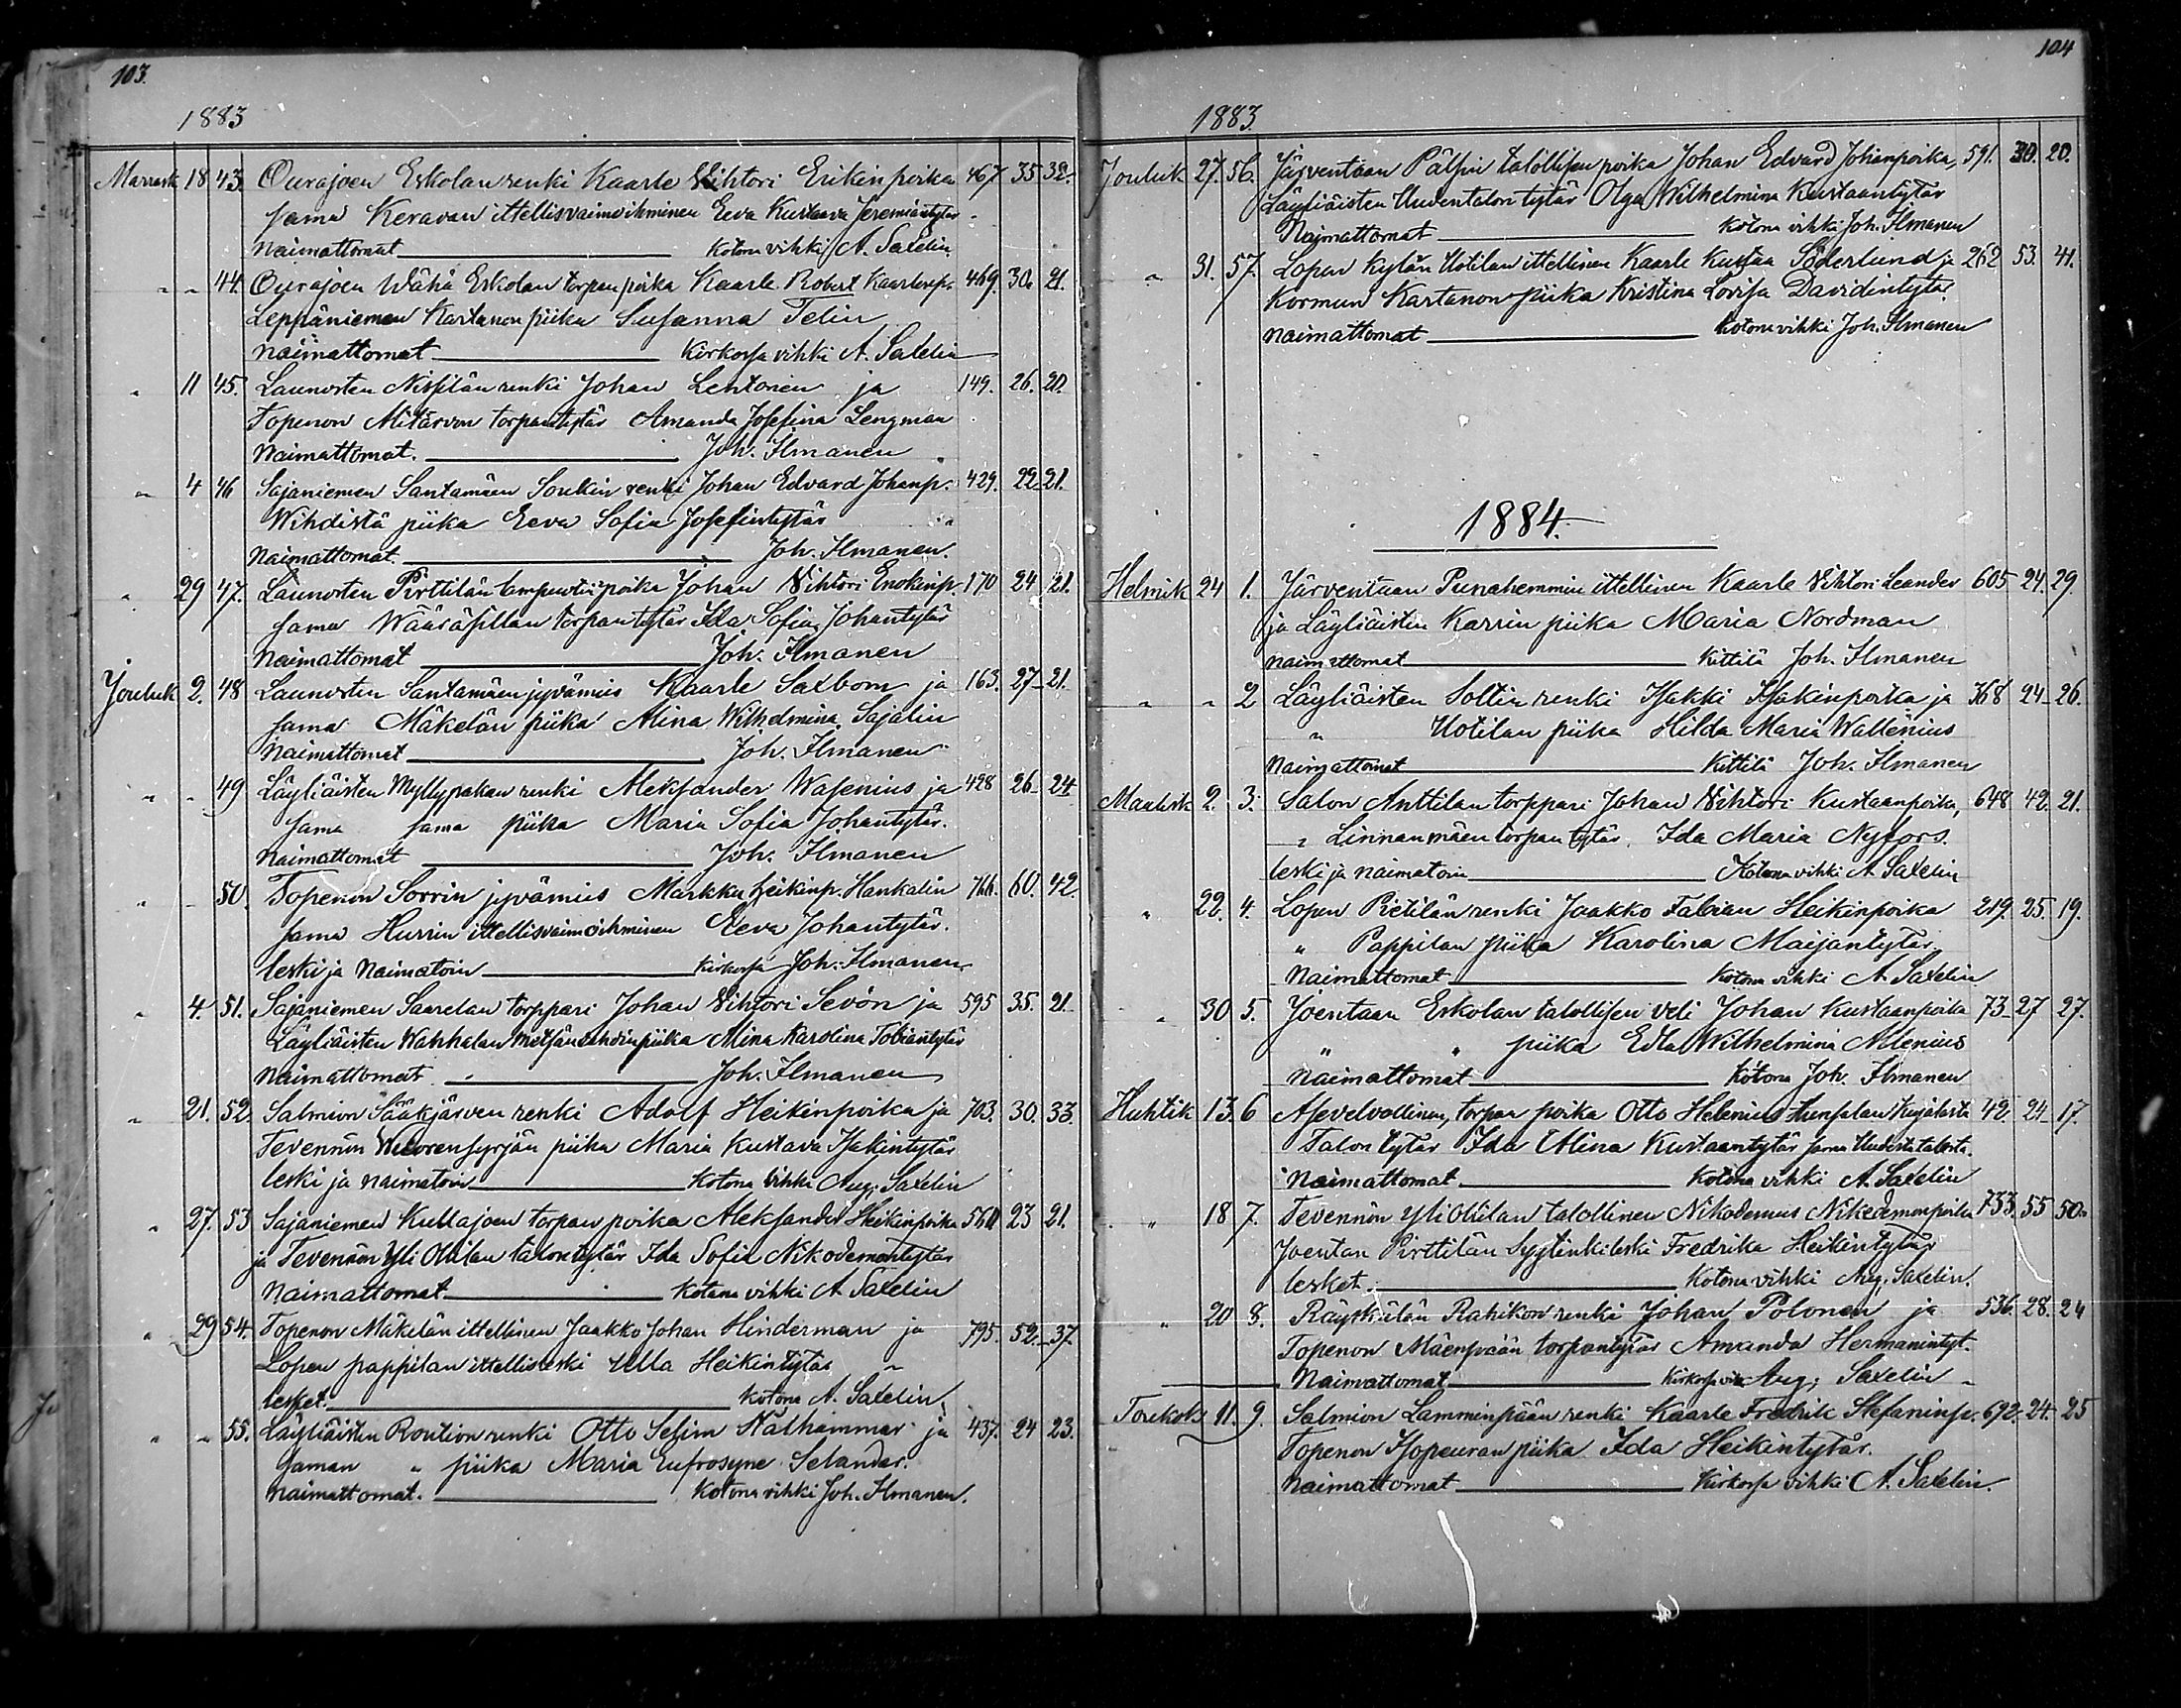 103.
1883
Marrask 18 43. Ourajoen Eskolan renki Kaarle Wihtori Erikinpoika 467 35 32.
sama Keravan ittellisvaimoihminen Eeva Kustaava Jeremiäntytär
Naimattomat kotona vihki A. Saxelin.
" " 44. Ourajoen Wähä Eskolan torpan poika Kaarle Robert Kaarlenp. 469. 30. 21.
Leppäniemen Kartanon piika Susanna Telin
Naimattomat Kirkossa vihki A. Saxelin
" 11 45. Launosten Nissilän renki Johan Lentonen ja 149. 26. 20.
Topenon torpantytär Amanda Josefina Lengman
Naimattomat. Joh. Ilmanen
" 4 46 Sajaniemen Santamäen Soukin renki Johan Edvard Johanp. 429. 22 21.
Wihdistä piika Eeva Sofia Josefintytär
Naimattomat. Joh. Ilmanen.
" 29 47. Launosten Pirttilän poika Johan Wihtori Enokinp. 170 24 21.
sama torpantytär Ida Sofia Johantytär
Naimattomat Joh. Ilmanen
Jouluk 2. 48 Launosten Santamäen jyvämies Kaarle Saxbom ja 163. 27 21.
sama Mäkelän piika Mina Wilhelmina Sajalin
Naimattomat Joh. Ilmanen
" " 49 Läyliäisten Myllypakan renki Aleksander Wasenius ja 428 26 24
sama sama piika Maria Sofia Johantytär.
Naimattomat Joh. Ilmanen
" " 50. Topenon Sorrin jyvämies Markku Heikinp. Hankalin 766. 60. 42.
sama Hurrin ittellisvaimoihminen Eeva Johantytär.
leski ja Naimatoin Kirkossa Joh. Ilmanen
" 4. 51. Sajaniemen Saarelan torppari Johan Wihtori Sevón ja 595 35. 21.
Läyliäisten Wahhalan metsänvahdin piika Mina Karolina Tobiantytär
Naimattomat Joh. Ilmanen
" 21. 52. Salmion Sääksjärven renki Adolf Heikinpoika ja 703. 30. 33.
Tevennön Wuorensyrjän piika Maria Kustava Isakintytär
leski ja naimatoin Kotona vihki Aug. Saxelin
" 27. 53 Sajaniemen Kullajoen torpan poika Aleksander Heikinpoika 560 23 21.
ja Tevennön Yli Ollilan talon tytär Ida Sofia Nikodemontytär
Naimattomat. Kotona vihki A Saxelin
" 29 54. Topenon Mäkelän ittellinen Jaakko Johan Hinderman ja 795. 52. 37.
Lopen pappilan ittellisleski Ulla Heikintytär
lesket. kotona A. Saxelin
" " 55. Läyliäisten Roution renki Otto Selim Stålhammar ja 437. 24 23.
saman " piika Maria Eufrosyne Selander.
Naimattomat. Kotona vihki Joh. Ilmanen.
104
1883.
Jouluk 27. 56. Järventaan Pälsin talollisen poika Johan Edvard Johanpoika, 591. 30. 20.
Läyliäisten Uudentalon tytär Olga Wilhelmina Kustaantytär
Naimattomat Kotona vihki Joh. Ilmanen
" 31. 57. Lopen kylän Uotilan ittellinen Kaarle Kustaa Söderlund ja 262 53. 41.
Kormun Kartanon piika Kristina Lovisa Davidintytär
Naimattomat Kotona vihki Joh. Ilmanen
1884.
Helmik 24 1. Järventaan Punahemmin ittellinen Kaarle Wihtori Leander 605 24. 29.
ja Läyliäisten Karrin piika Maria Nordman
naimattomat Kittilä Joh. Ilmanen
" " 2 Läyliäisten Soltin renki Isakki Isakinpoika ja 368 24 26.
" Uotilan piika Hilda Maria Wallenius
Naimattomat Kittilä Joh. Ilmanen
Maalisk 2. 3. Salon Anttilan torppari Johan Wihtori Kustaanpoika, 648 42. 21.
" Linnanmäen torpan tytär, Ida Maria Nyfors.
leski ja naimatoin Kotona vihki A. Saxelin
" 22. 4. Lopen Pietilän renki Jaakko Fabian Heikinpoika 219. 25. 19.
" Pappilan piika Karolina Maijantytär
Naimattomat Kotona vihki A. Saxelin
" 30 5. Joentaan Eskolan talollisen veli Johan Kustaanpoika 73 27 27.
" " piika Edla Wilhelmina Alenius
Naimattomat Kotona Joh. Ilmanen
Huhtik 13. 6 torpan poika Otto Helenius 42. 24 17.
Talon tytär Ida Mina Kustaantytär sama Uudestatalosta.
Naimattomat Kotona vihki A. Saxelin
" 18 7. Tevennön Yli Ollilan talollinen Nikodemus Nikodemonpoika 733. 55 50.
Joentaan Pirttilän syytinkileski Fredrika Heikintytär
lesket. Kotona vihki Aug. Saxelin.
" 20 8. Räyskälän Rahikon renki Johan Polonen ja 536. 28. 24
Topenon Mäenpään torpantytär Amanda Hermanintyt.
Naimattomat Kirkossa Aug. Saxelin
Toukok 11. 9. Salmion Lamminpään renki Kaarle Fredrik Stefaninp. 692. 24. 25
Topenon Isopeuran piika Ida Heikintytär.
Naimattomat Kirkossa vihki A. Saxelin.